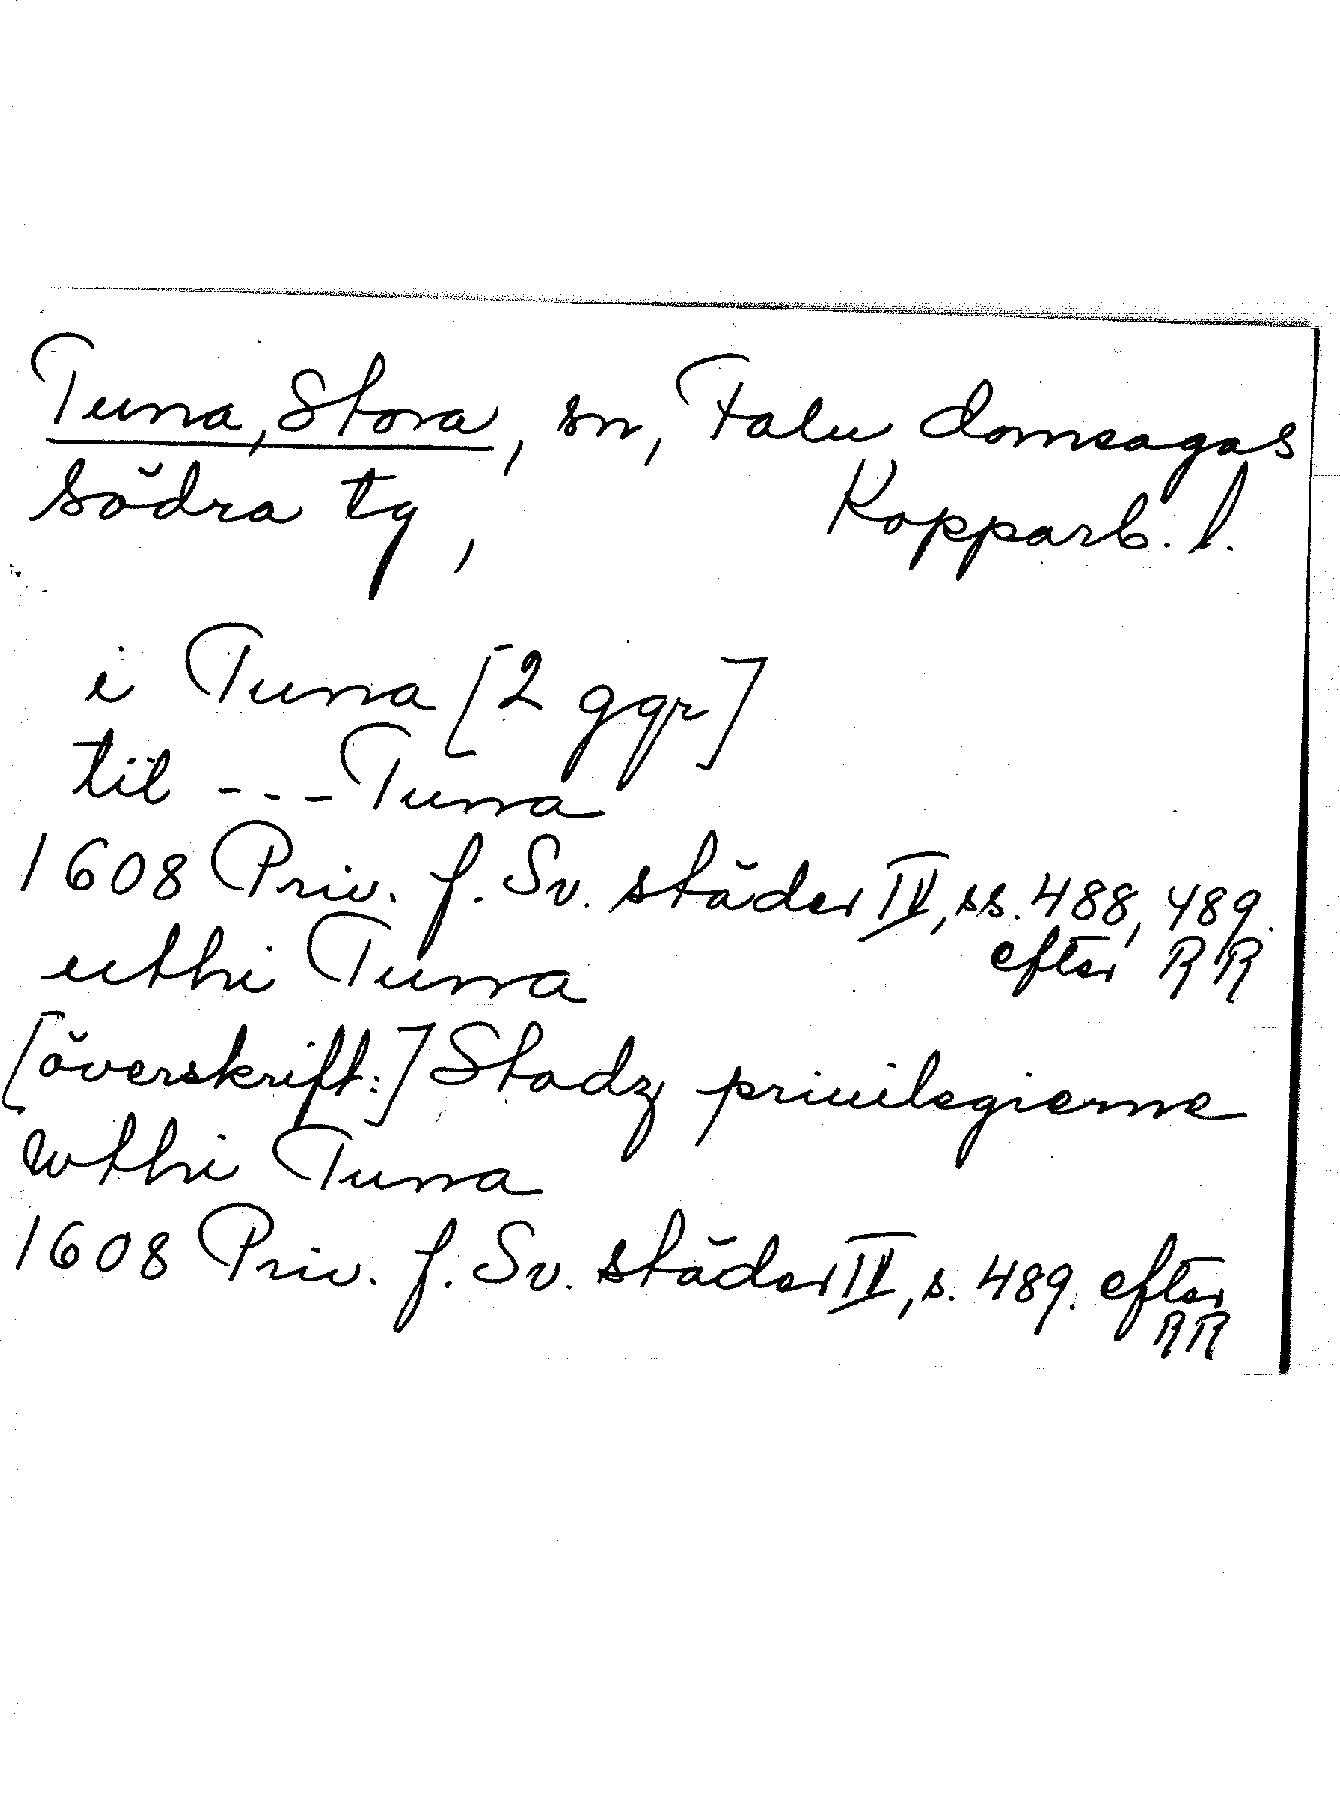 Tuna, Stora, sn, Falu domsagas
södra tg, Kopparb. l.
i Tuna [2 ggr]
til --- Tuna
1608 Priv. f. Sv. städer IV, ss. 488, 489.
efter RR
uthi Tuna
[överskrift:] Stadz priuilegierne
wthi Tuna
1608 Priv. f. Sv. städer IV, s. 489. efter
RR